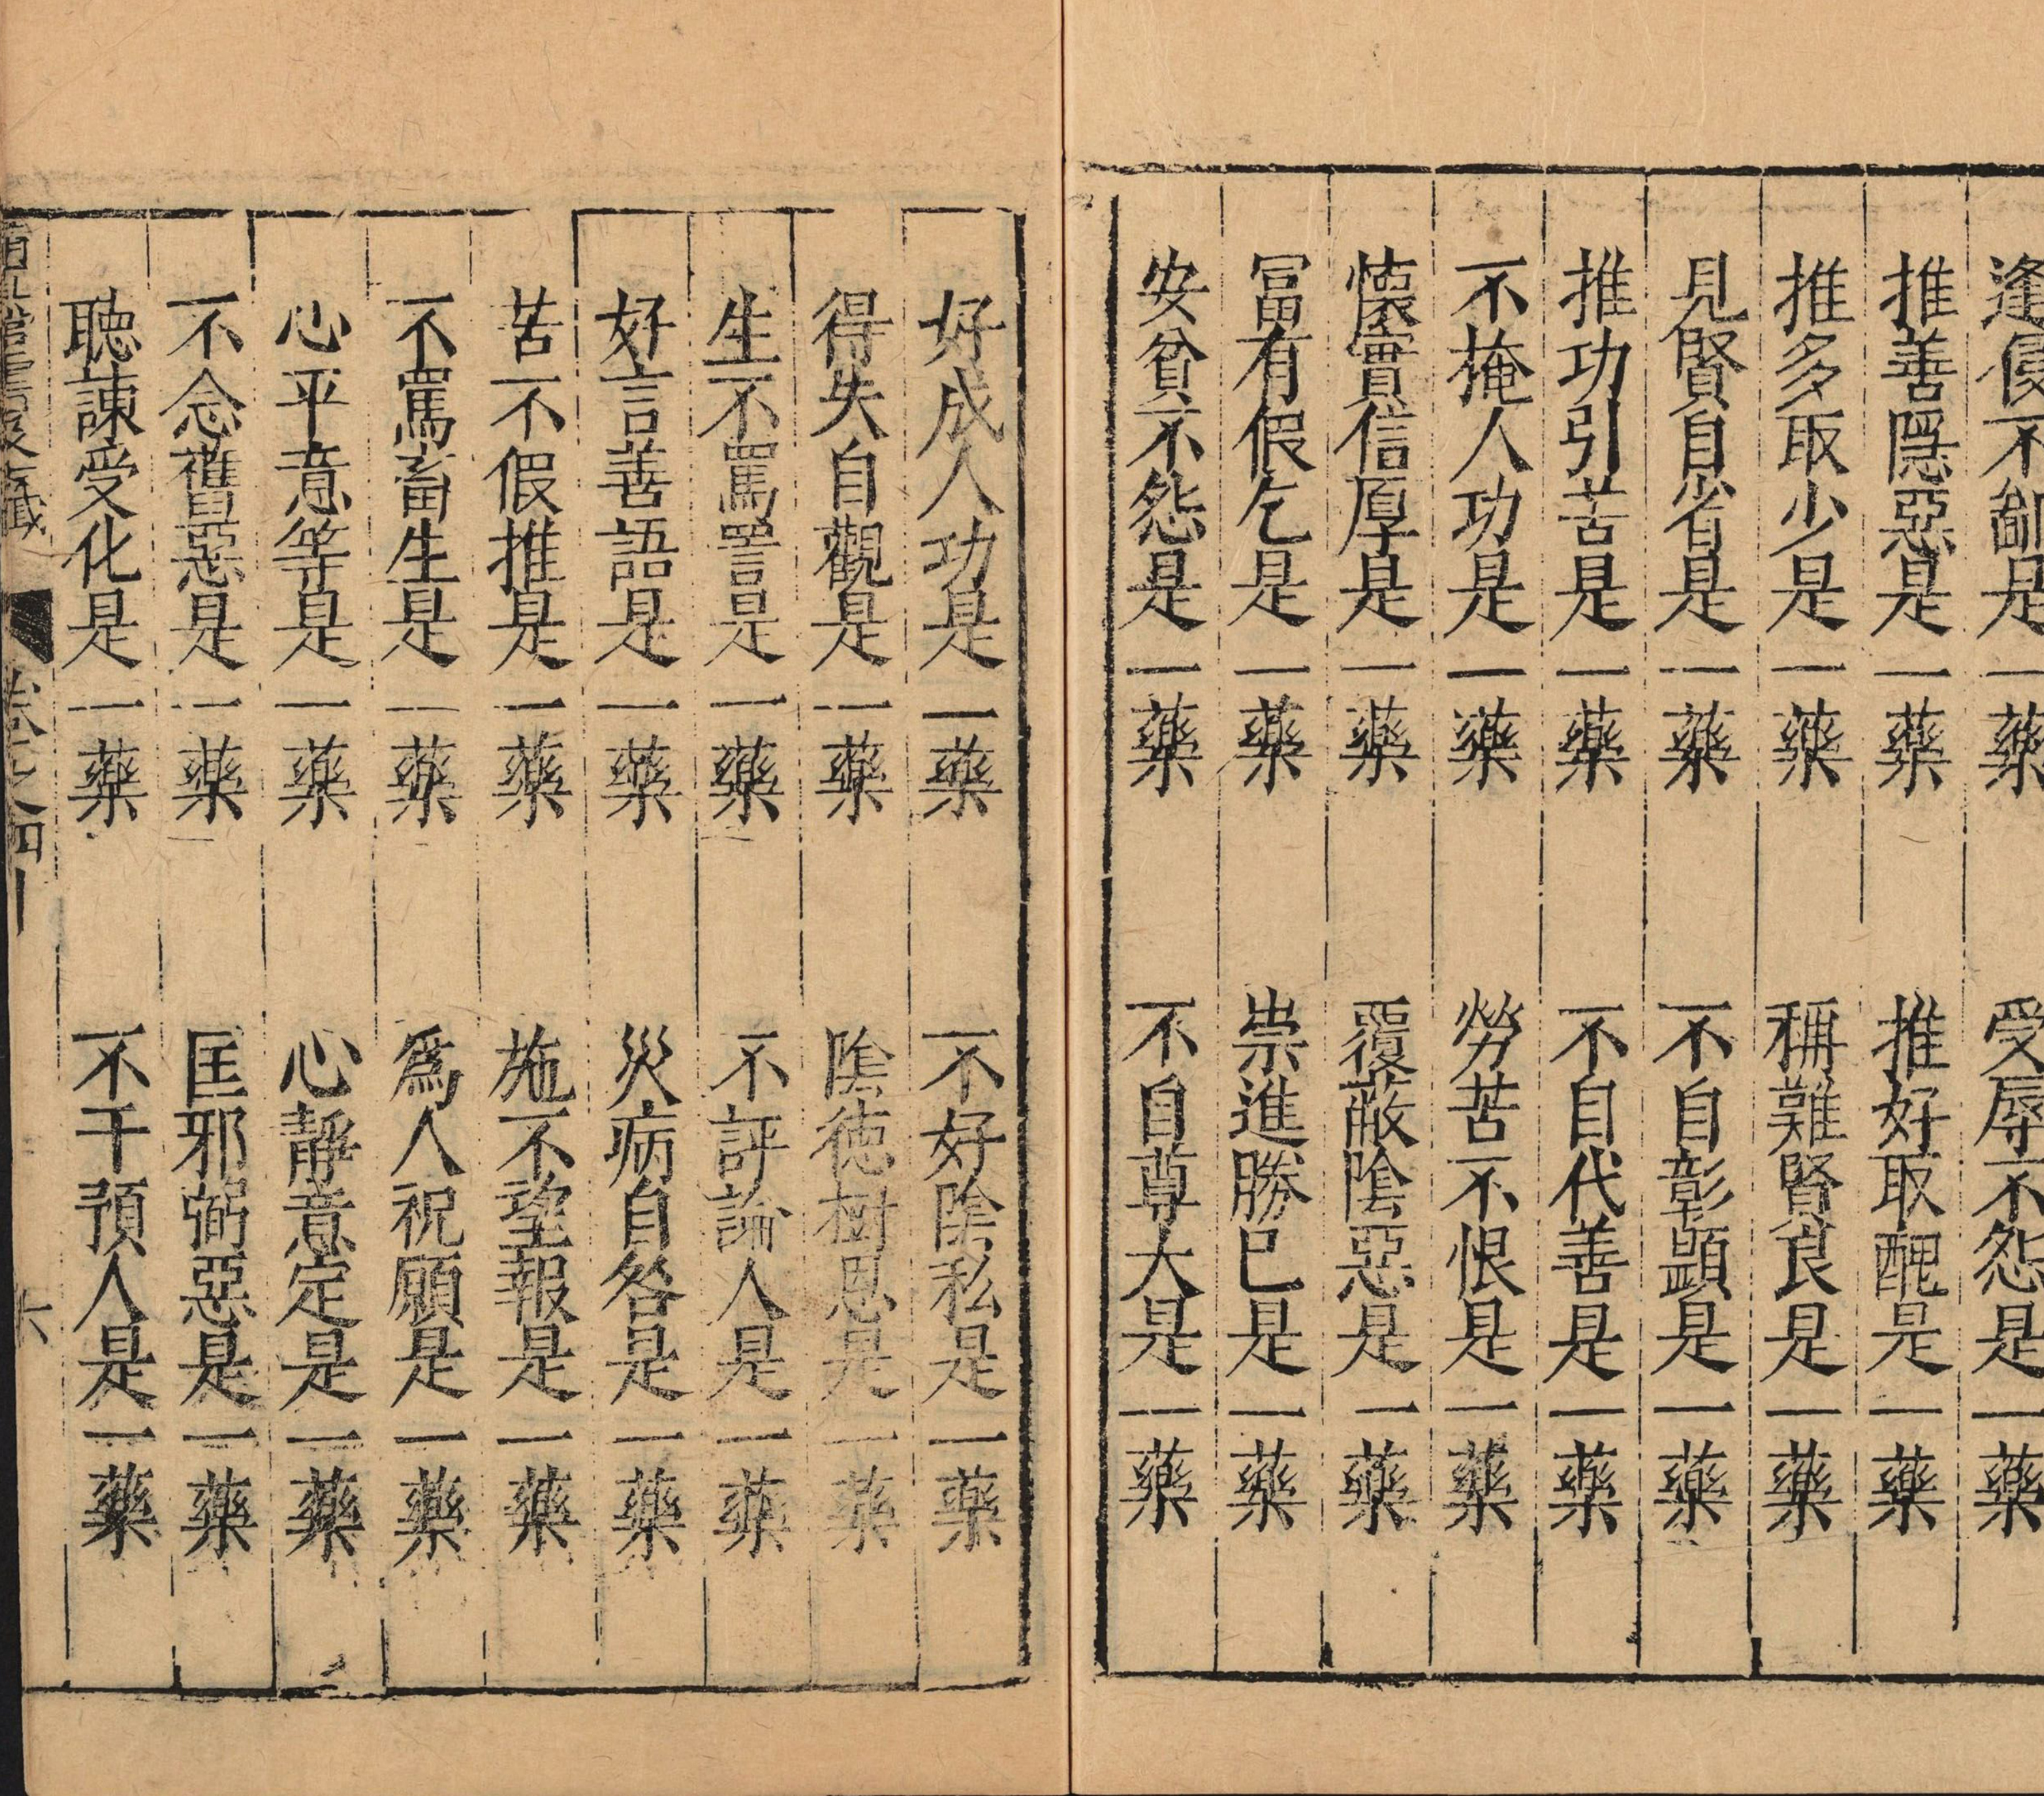 逢侵不鄙是一藥　受辱不怨是一藥
推善隱惡是一藥　推好取醜是一藥
推多取少是一藥　稱難賢良是一藥
見賢自省是一藥　不自彰顯是一藥
推功引苦是一藥　不自代善是一藥
不掩人功是一藥　勞苦不恨是一藥
懷實信厚是一藥　覆蔽陰惡是一藥
冨有假乞是一藥　崇進勝巳是一藥
安貧不怨是一藥　不自尊大是一藥
好成人功是一藥　不好陰私是一藥
得失自觀是一藥　陰德樹恩是一藥
生不罵詈是一藥　不評論人是一藥
好言善語是一藥　災病自咎是一藥
苦不假推是一藥　施不望報是一藥
不罵畜生是一藥　爲人祝願是一藥
心平意等是一藥　心靜意定是一藥
不念舊惡是一藥　匡邪弼惡是一藥
聽諫受化是一藥　不干預人是一藥
六